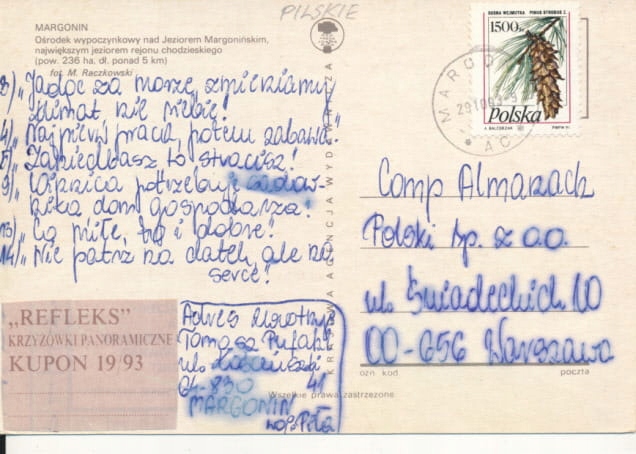 PILSKIE
MARGONIN
Ośrodek wypoczynkowy nad Jeziorem Margonińskim,
największym jeziorem rejonu chodzieskiego
(pow. 236 ha, dł. ponad 5 km)
fot. M. Raczkowski
3) „Jadąc za morze, zmieniamy
klimat nie siebie!
4) „Najpierw praca, potem zabawa."
5) „Zaniedbasz to stracisz!
9) „Winnica potrzebuje
dom gospodarza!
13) „Co miłe, to i dobre!
14) „Nie patrz na datek, ale na
serce"!
KRAJOWA AGENCJA WYDAWNICZA
SOSNA WEJMUTKA PINUS STROBUS L.
1500zł
Polska
A. BALCERZAK
PWPW 93
MARGO
29.10.93-9
AC
Comp Almarack
Polski Sp. z o.o.
ul. Śniadeckich 10
00-656 Warszawa
ozn. kod poczta
„REFLEKS"
KRZYŻÓWKI PANORAMICZNE
KUPON 19/93
Adres
Tomasz
ul. Kościuszki
64-830 41
MARGONIN
woj. Piła
Wszelkie prawa zastrzeżone